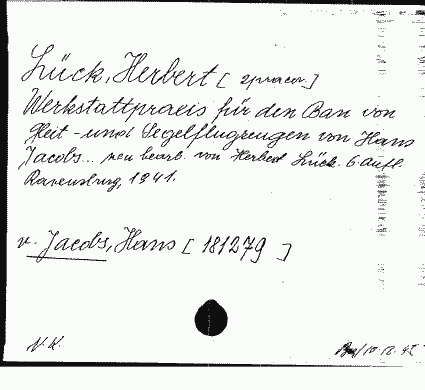 Lück, Herbert [zpracov.]
Werkstattpraxis für den Bau von
Gleit- und Segelflugzeugen von Hans
Jacobs... neu bearb. von Herbert Lück. 6 Aufl.
Ravensburg, 1941.
v. Jacobs, Hans [181279]
N.K.